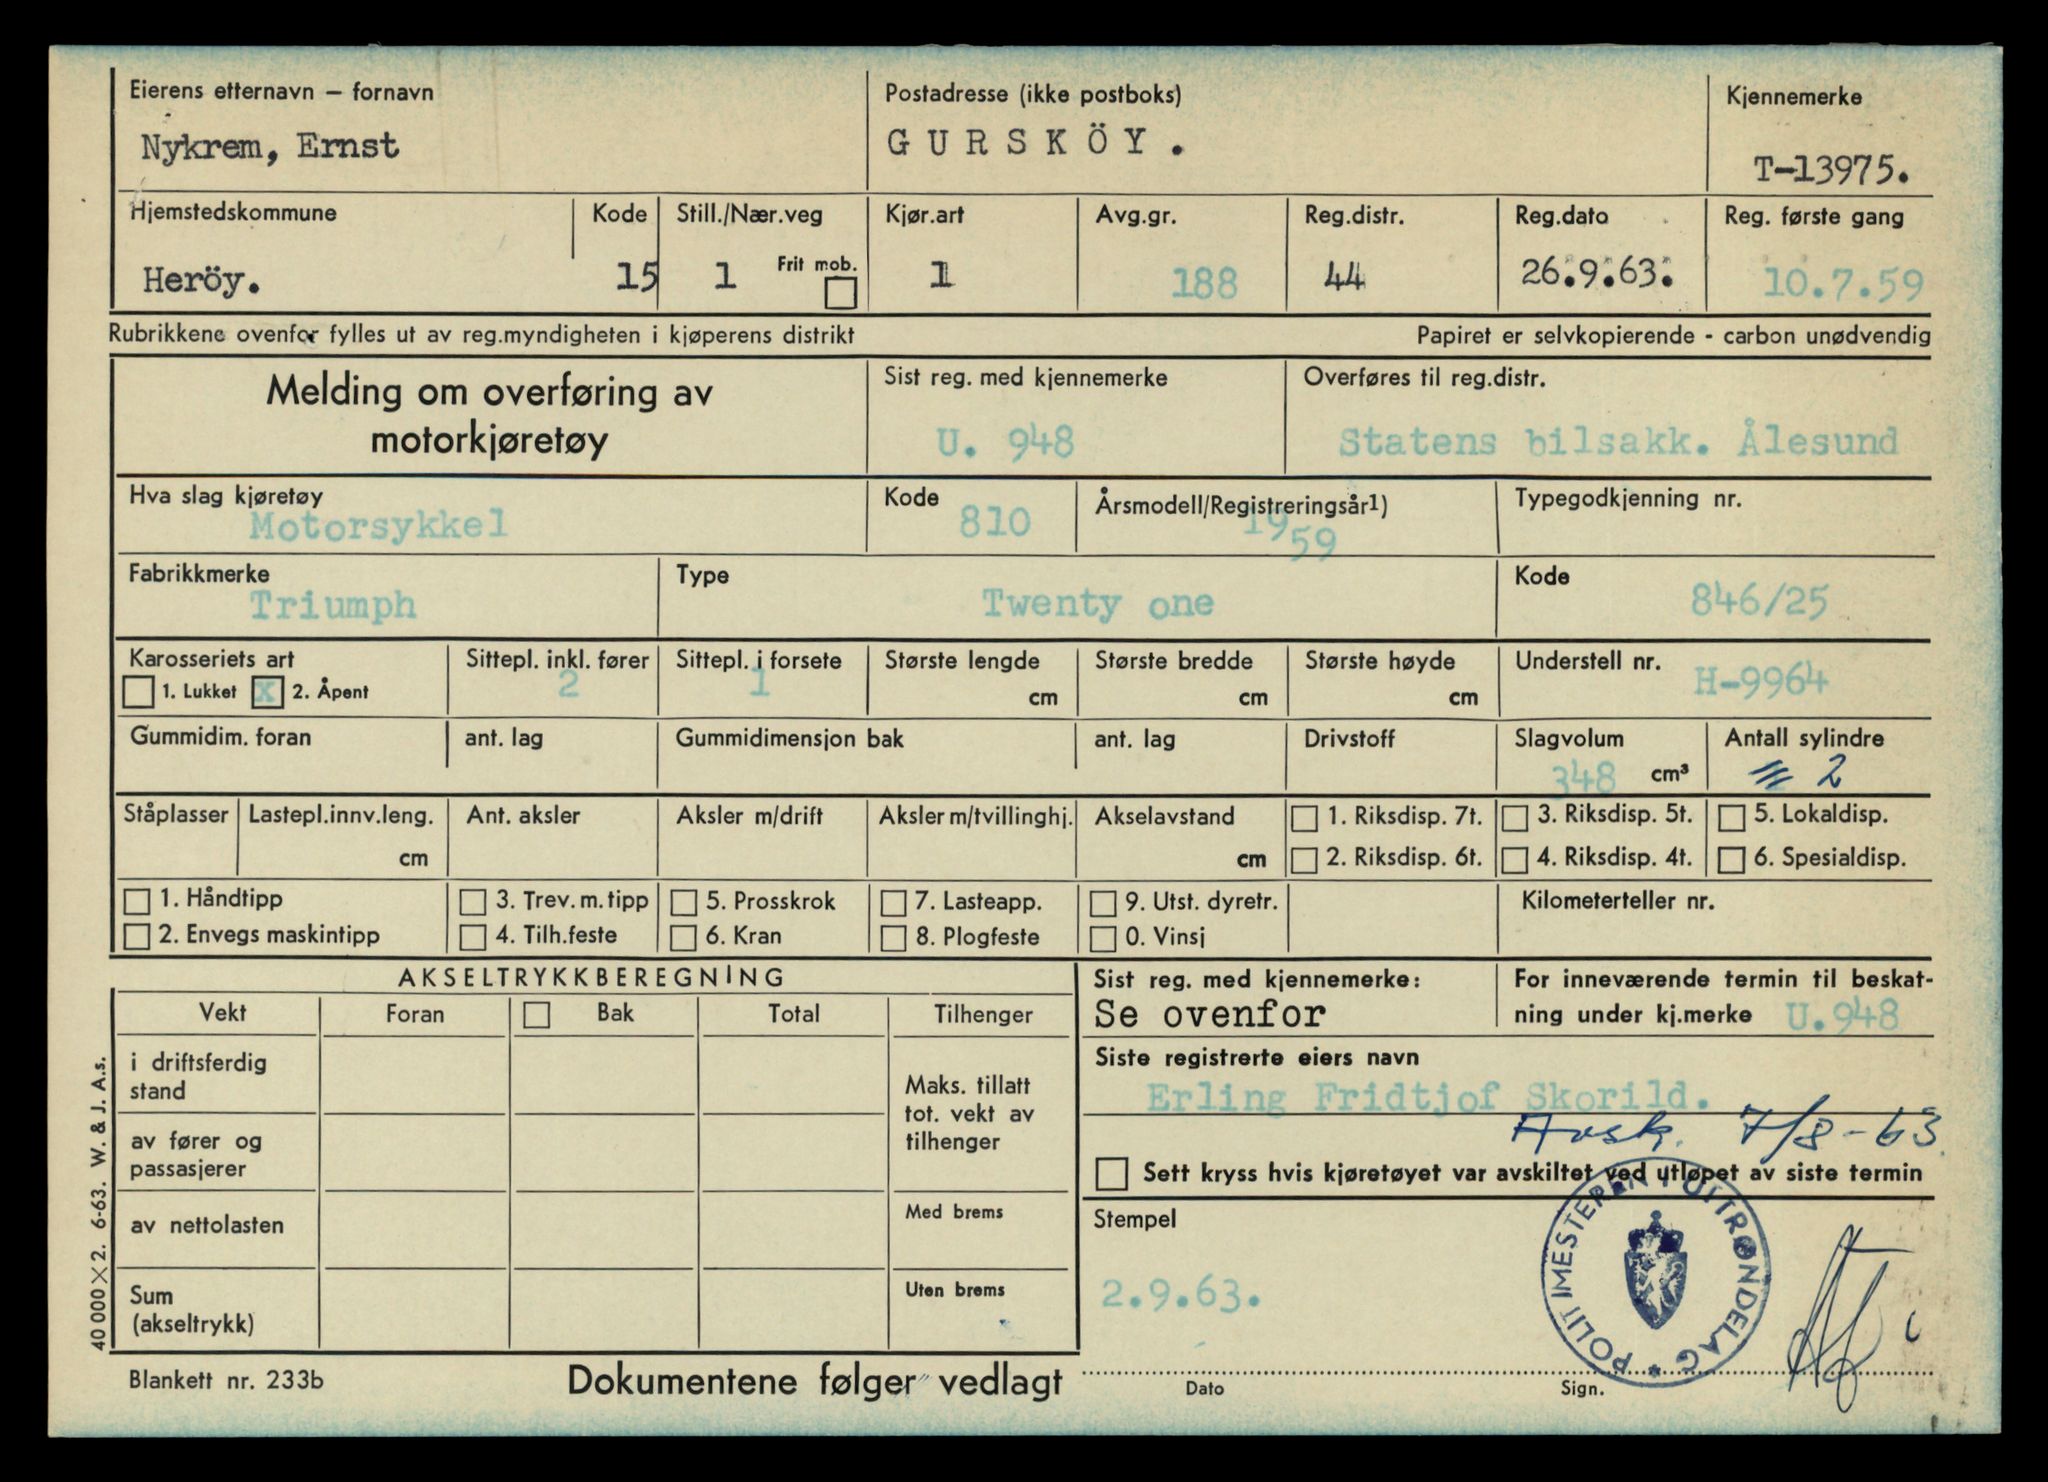 Eierens etternavn – fornavn
Nykrem, Ernst
Postadresse (ikke postboks)
GURSKÖY.
Kjennemerke
T-13975.
Hjemstedskommune
Heröy.
Kode
15
Still./Nær.veg
1
Frit mob.
Kjør.art
1
Avg.gr.
188
Reg.distr.
44
Reg.dato
26.9.63.
Reg. første gang
10.7.59
Rubrikkene ovenfor fylles ut av reg.myndigheten i kjøperens distrikt
Papiret er selvkopierende - carbon unødvendig
Melding om overføring av
motorkjøretøy
Sist reg. med kjennemerke
U. 948
Overføres til reg.distr.
Statens bilsakk. Ålesund
Hva slag kjøretøy
Motorsykkel
Kode
810
Årsmodell/Registreringsår1)
19
59
Typegodkjenning nr.
Fabrikkmerke
Triumph
Type
Twenty one
Kode
846/25
Karosseriets art
1. Lukket x 2. Åpent
Sittepl. inkl. fører
2
Sittepl. i forsete
1
Største lengde
cm
Største bredde
cm
Største høyde
cm
Understell nr.
H-9964
Gummidim. foran
ant. lag
Gummidimensjon bak
ant. lag
Drivstoff
Slagvolum
348 cm³
Antall sylindre
2
Ståplasser
Lastepl.innv.leng.
cm
Ant. aksler
Aksler m/drift
Aksler m/tvillinghj.
Akselavstand
cm
1. Riksdisp. 7t.
2. Riksdisp. 6t.
3. Riksdisp. 5t.
4. Riksdisp. 4t.
5. Lokaldisp.
6. Spesialdisp.
1. Håndtipp
2. Envegs maskintipp
3. Trev. m. tipp
4. Tilh.feste
5. Prosskrok
6. Kran
7. Lasteapp.
8. Plogfeste
9. Utst. dyretr.
0. Vinsj
Kilometerteller nr.
AKSELTRYKKBEREGNING
Vekt
Foran
Bak
Total
Tilhenger
i driftsferdig
stand
av fører og
passasjerer
av nettolasten
Sum
(akseltrykk)
Maks. tillatt
tot. vekt av
tilhenger
Med brems
Uten brems
Sist reg. med kjennemerke:
Se ovenfor
For inneværende termin til beskat-
ning under kj.merke U.948
Siste registrerte eiers navn
Erling Fridtjof Skorild.
Avsk. 7/8-63
Sett kryss hvis kjøretøyet var avskiltet ved utløpet av siste termin
Stempel
2.9.63.
POLITIMESTEREN I UTTRØNDELAG
Dato
Sign.
40 000 × 2. 6-63. W. & J. A.s.
Blankett nr. 233b
Dokumentene følger vedlagt